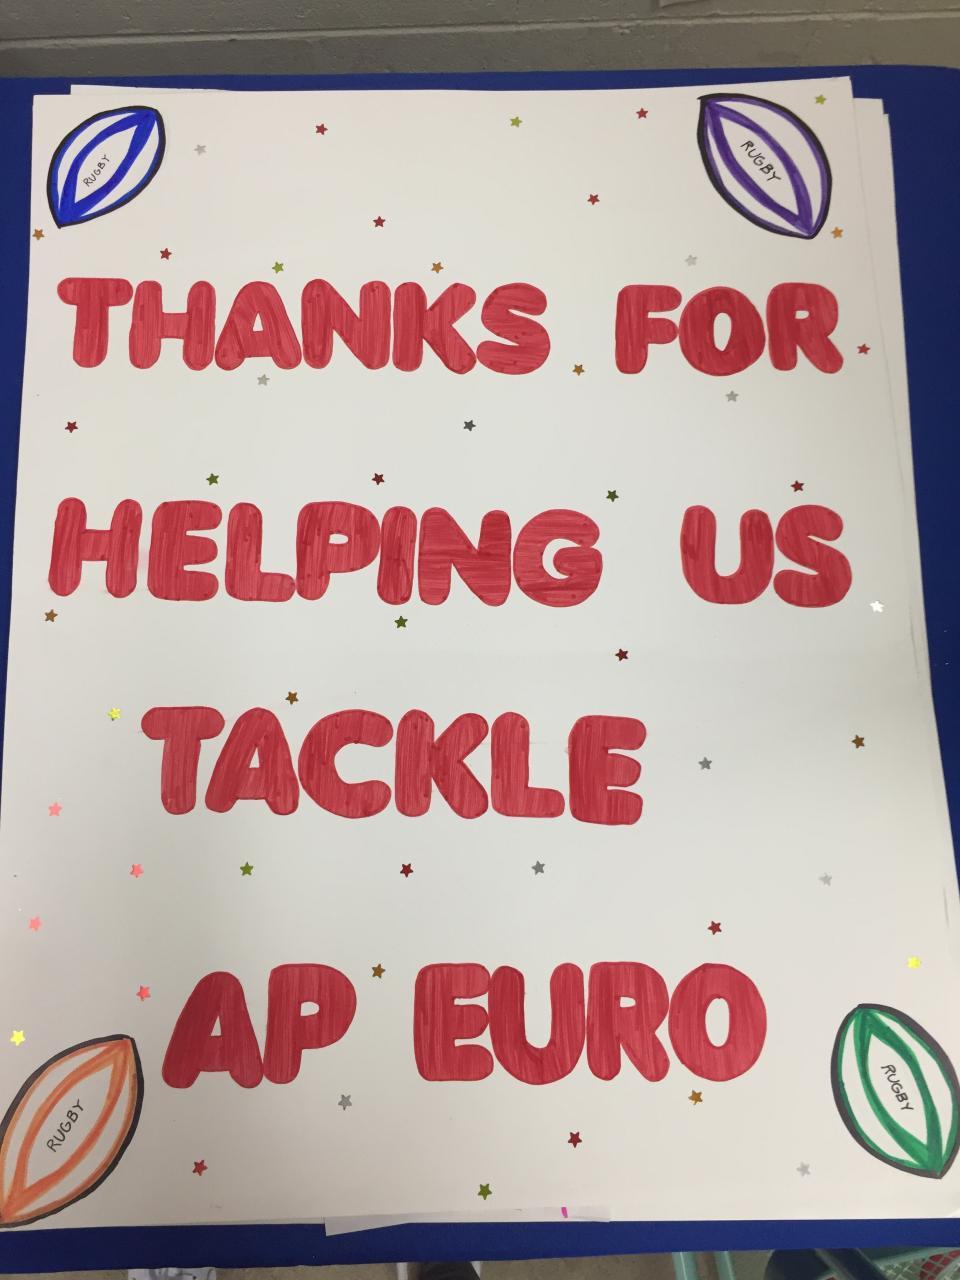 RUGBY
RUGBY
THANKS FOR
HELPING US
TACKLE
AP EURO
RUGBY
RUGBY